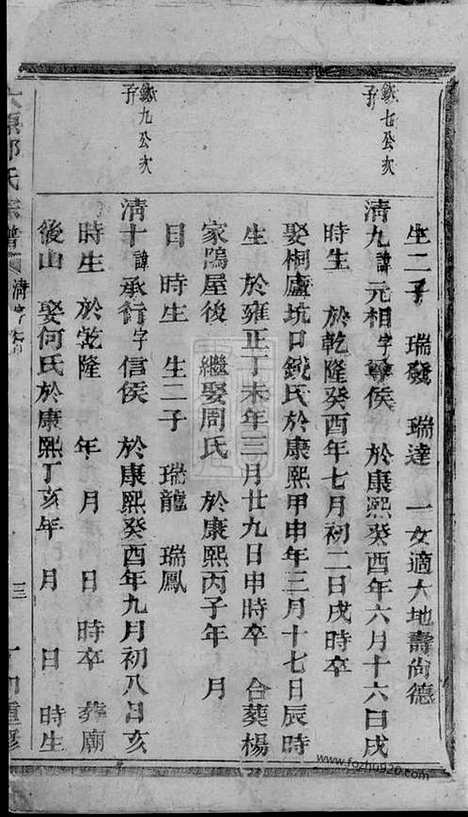 生二子 瑞發 瑞達 一女適大地壽尚德
鉞七公次子
清九諱元相字尊侯 於康熙癸酉年六月十六日戌
時生 於乾隆癸酉年七月初二日戌時卒
娶桐廬坑口鉞氏於康熙甲申年三月十七日辰時
生 於雍正丁未年三月廿九日申時卒 合葬楊
家塢屋後 繼娶周氏 於康熙丙子年 月
日 時生 生二子 瑞龍 瑞鳳
鉞九公次子
清十諱承行字信侯 於康熙癸酉年九月初八日亥
時生 於乾隆 年 月 日 時卒 葬廟
後山 娶何氏於康熙丁亥年 月 日 時生
氏宗譜 清字 三 重修
www.fozhu920.com